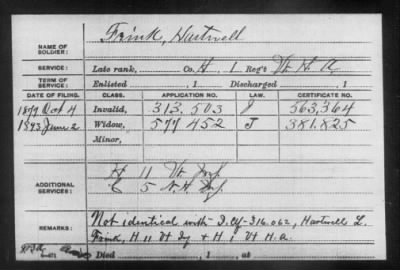 NAME OF SOLDIER: Frink, Hartwell
SERVICE: Late rank, Co. H, 1 Reg't Vt. H. A.
TERM OF SERVICE: Enlisted , 1 Discharged , 1
DATE OF FILING. CLASS. APPLICATION NO. LAW. CERTIFICATE NO.
1879 Oct 4 Invalid, 313,503 J 563,364
1893 June 2 Widow, 577 452 J 381.825
Minor,
ADDITIONAL SERVICES: H 11 Vt Inf
C 5 N.H. Inf
REMARKS: Not identical with I. Cf - 316.062, Hartwell L.
Frink, H 11 Vt Inf & H 1 Vt H.A.
Died , 1 , at